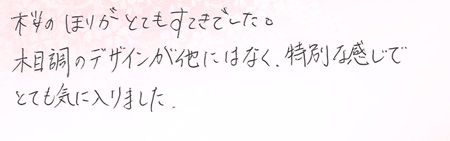 桜のほりがとてもすてきでした。
木目調のデザインが他にはなく、特別な感じで
とても気に入りました.